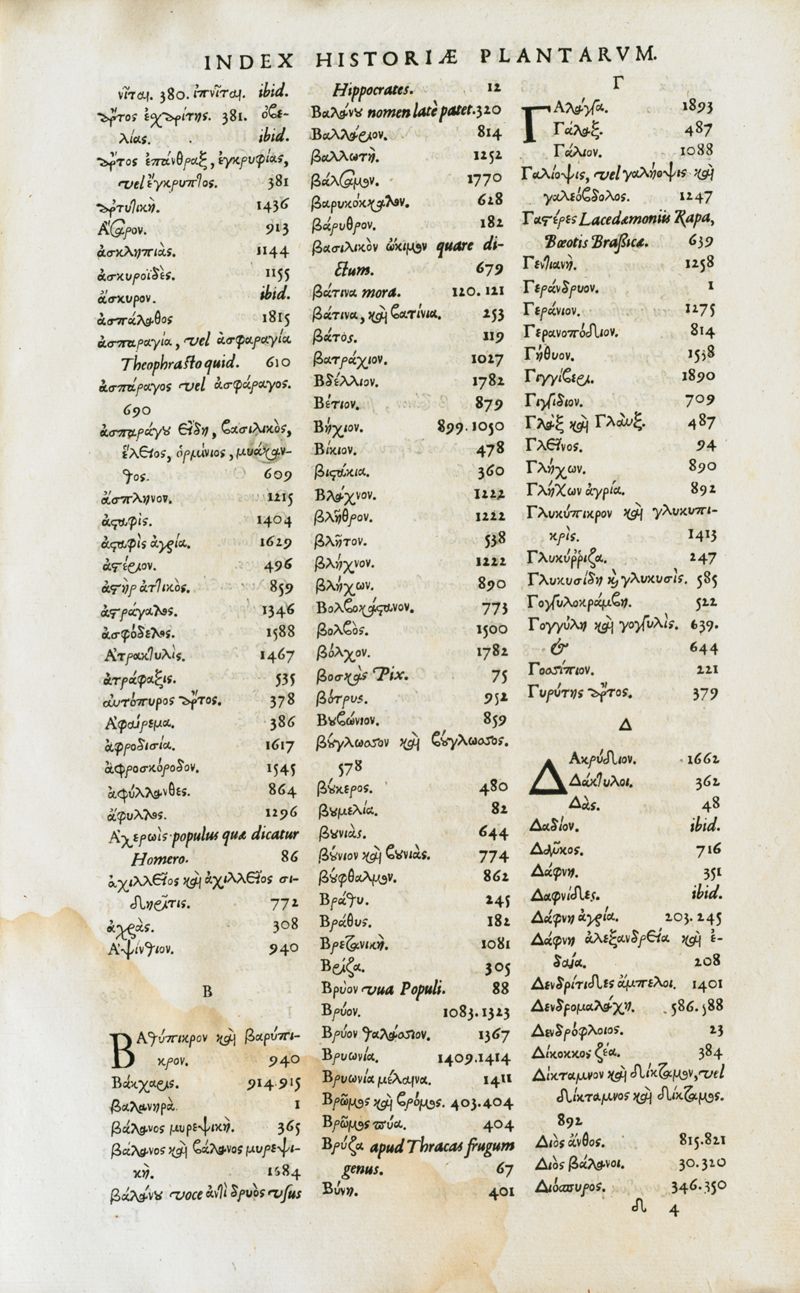 INDEX HISTORIÆ PLANTARVM.
νῖται. 380. ἰπνῖται. ibid.
ἄρτος ἐχαρίτης. 381. ὀβε-
λίας. ibid.
ἄρτος ἐπάνθραξ, ἐγκρυφίας,
vel ἔγκρυπτος. 381
ἀρτυτικὴ. 1436
Ἄσαρον. 913
ἀσκληπιὰς. 1144
ἀσκυροϊδὲς. 1155
ἄσκυρον. ibid.
ἀσπάλαθος 1815
ἀσπαραγία, vel ἀσφαραγία
Theophrasto quid. 610
ἀσπάραγος vel ἀσφάραγος.
690
ἀσπαράγου εἴδη, βασιλικὸς,
ἕλειος, ὀρμίνιος, μυάκαν-
τος. 609
ἄσπληνον. 1215
ἀσταφὶς. 1404
ἀσταφὶς ἀγρία. 1629
ἀστέριον. 496
ἀστὴρ ἀττικὸς. 859
ἀστράγαλος. 1346
ἀσφόδελος. 1588
Ἀτρακτυλὶς. 1467
ἀτράφαξις. 535
αὐτόπυρος ἄρτος. 378
Ἀφαίρεμα. 386
ἀφροδισία. 1617
ἀφροσκόροδον. 1545
ἀφύλλανθες. 864
ἄφυλλος. 1296
Ἀχερωὶς populus quæ dicatur
Homero. 86
ἀχίλλειος καὶ ἀχιλλεῖος σι-
δηρῖτις. 772
ἀχρὰς. 308
Ἀψίνθιον. 940
B
ΒΑτύπικρον καὶ βαρύπι-
κρον. 940
Βάκχαρις. 914.915
βαλανηρὰ. 1
βάλανος μυρεψικὴ. 365
βάλανος καὶ βάλανος μυρεψι-
κὴ. 1684
βάλανου voce ἀντὶ δρυὸς vsus
Hippocrates. 12
Βαλάνου nomen latè patet. 320
Βαλλάριον. 814
βαλλωτὴ. 1252
βάλσαμον. 1770
βαρυκόκκαλον. 628
βάρυθρον. 182
βασιλικὸν ὤκιμον quare di-
ctum. 679
βάτινα mora. 120.121
βάτινα, καὶ βατίνια. 253
βάτος. 119
βατράχιον. 1027
Βδέλλιον. 1782
Βέτιον. 879
Βήχιον. 899.1050
Βίκιον. 478
βιστάκια. 360
Βλάχνον. 1222
βλῆθρον. 1222
βλῆτον. 538
βλῆχνον. 1222
βλήχων. 890
Βολβοκάστανον. 773
βολβὸς. 1500
βόλχον. 1782
βοσκὰς Pix. 75
βότρυς. 952
Βουβώνιον. 859
βούγλωσσον καὶ βούγλωσσος.
578
βούκερος. 480
βουμελία. 82
βουνιὰς. 644
βούνιον καὶ βουνιὰς. 774
βούφθαλμον. 862
Βράθυ. 245
Βράθυς. 182
Βρεττανικὴ. 1081
Βρίζα. 305
Βρύον vua Populi. 88
Βρύον. 1083.1323
Βρύον θαλάσσιον. 1367
Βρυωνία. 1409.1414
Βρυωνία μέλαινα. 1411
Βρῶμος καὶ βρόμος. 403.404
Βρῶμος πύα. 404
Βρύζα apud Thracas frugum
genus. 67
Βύνη. 401
Γ
ΓΑλάγγα. 1893
Γάλαξ. 487
Γάλιον. 1088
Γαλίοψις, vel γαλήοψις καὶ
γαλεόβδολος. 1247
Γαστέρες Lacedæmoniis Rapa,
Bœotis Brassica. 639
Γεντιανὴ. 1258
Γεράνδρυον. 1
Γεράνιον. 1275
Γερανοπόδιον. 814
Γήθυον. 1538
Γιγγίβερι. 1890
Γιγγίδιον. 709
Γλὰξ καὶ Γλαὺξ. 487
Γλεῖνος. 94
Γλήχων. 890
Γλήχων ἀγρία. 892
Γλυκύπικρον καὶ γλυκυπι-
κρὶς. 1413
Γλυκύῤῥιζα. 247
Γλυκυσίδη καὶ γλυκυσὶς. 585
Γογγυλοκράμβη. 522
Γογγύλη καὶ γογγυλὶς. 639.
& 644
Γοσσίπιον. 221
Γυρύτης ἄρτος. 379
Δ
ΔΑκρύδιον. 1662
Δάκτυλοι. 362
Δὰς. 48
Δαδίον. ibid.
Δαῦκος. 716
Δάφνη. 351
Δαφνίδες. ibid.
Δάφνη ἀγρία. 203.245
Δάφνη ἀλεξανδρεία καὶ ἐ-
δαία. 208
Δενδρίτιδες ἄμπελοι. 1401
Δενδρομαλάχη. 586.588
Δενδρόφλοιος. 23
Δίκοκκος ζέα. 384
Δίκταμνον καὶ δίκταμον, vel
δίκταμνος καὶ δίκταμος.
892
Διὸς ἄνθος. 815.821
Διὸς βάλανοι. 30.320
Διόσπυρος. 346.350
δ 4